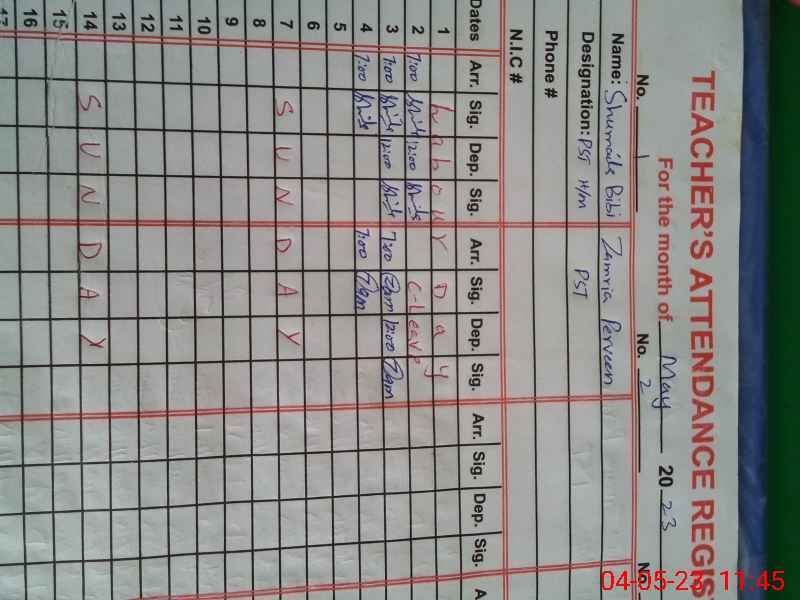 TEACHER'S ATTENDANCE REGIS
For the month of May 2023
No. 1 No. 2 No
Name: Shumaila Bibi Zamria Perveen
Designation: PST H/M PST
Phone #
N.I.C #
Dates Arr. Sig. Dep. Sig. Arr. Sig. Dep. Sig. Arr. Sig. Dep. Sig. A
1 Labour Day
2 7:00 12:00 C-Leave
3 7:00 12:00 7:00 12:00
4 7:00 7:00
5
6
7 SUNDAY
8
9
10
11
12
13
14 SUNDAY
15
16
17
04-05-23 11:45